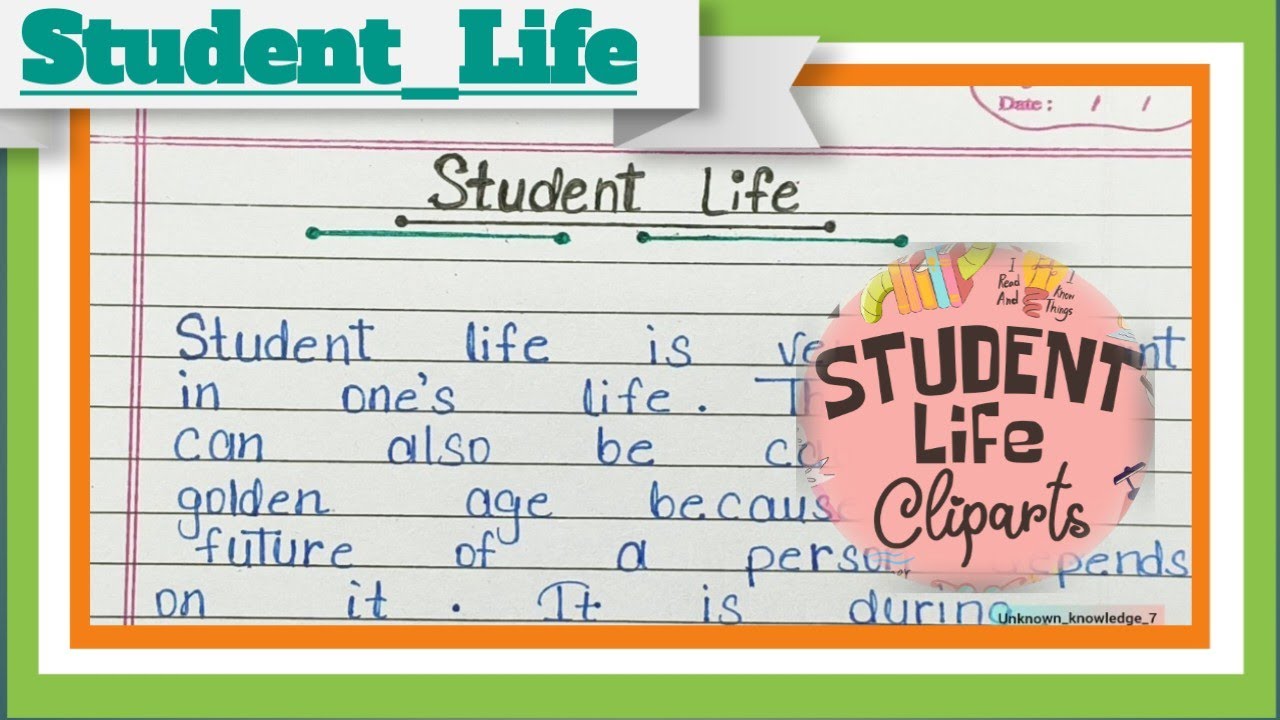 Student_Life
Date: / /
Student Life
Student life is
in one's life.
can also be
golden age
future of a depends
on it. It is during
I Read And Know Things
STUDENT
Life
Cliparts
Unknown_knowledge_7